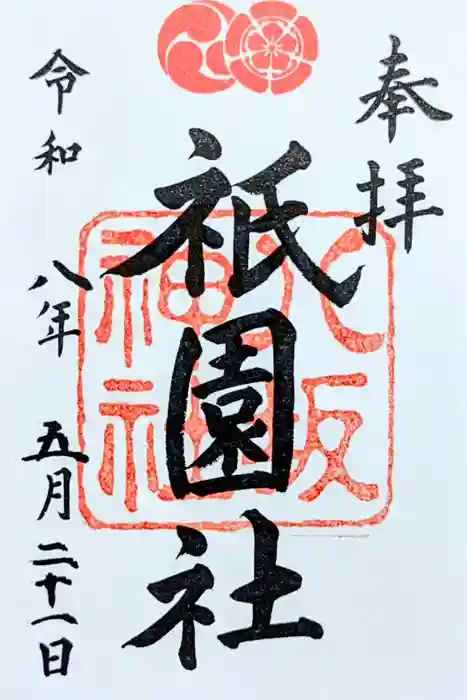 奉拝
祇園社
八坂
神社
令和八年五月二十一日